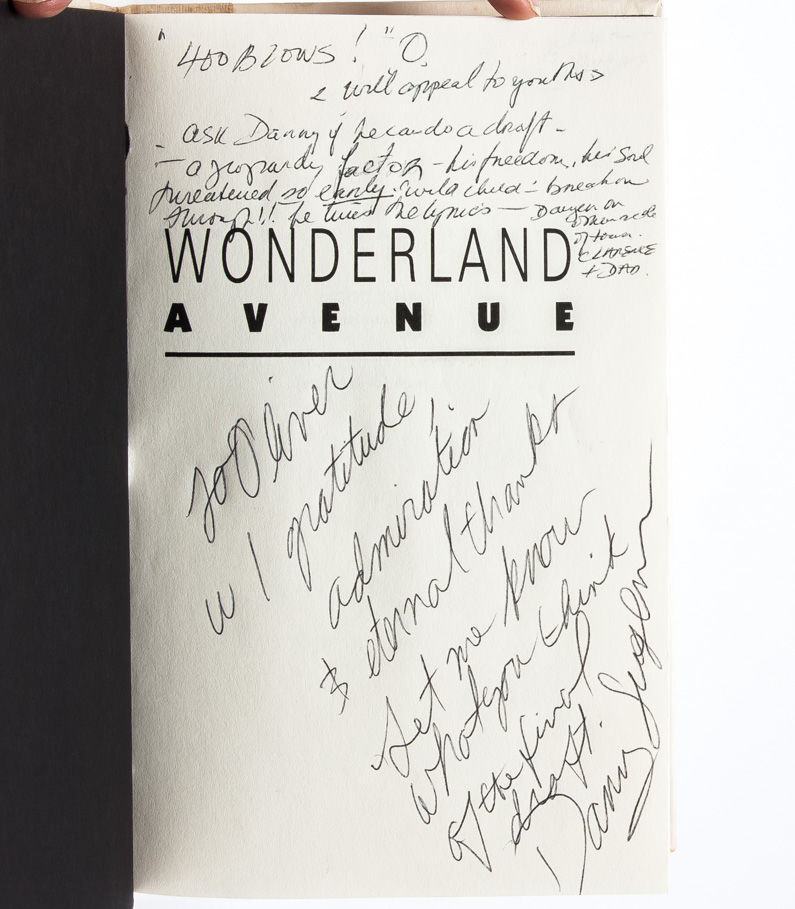 "400 BLOWS!" O.
& will appeal to youths
- ask Danny if he can do a draft -
- a jeopardy factor - his freedom, his soul
threatened so early. "wild child" - break on
through!! he lives the lyrics -
on other side
of town.
CLARENCE
+ DAD.
WONDERLAND
AVENUE
to Oliver
w/ gratitude,
admiration
& eternal thanks
Let me know
what you think
of the final
draft.
Danny Sugerman